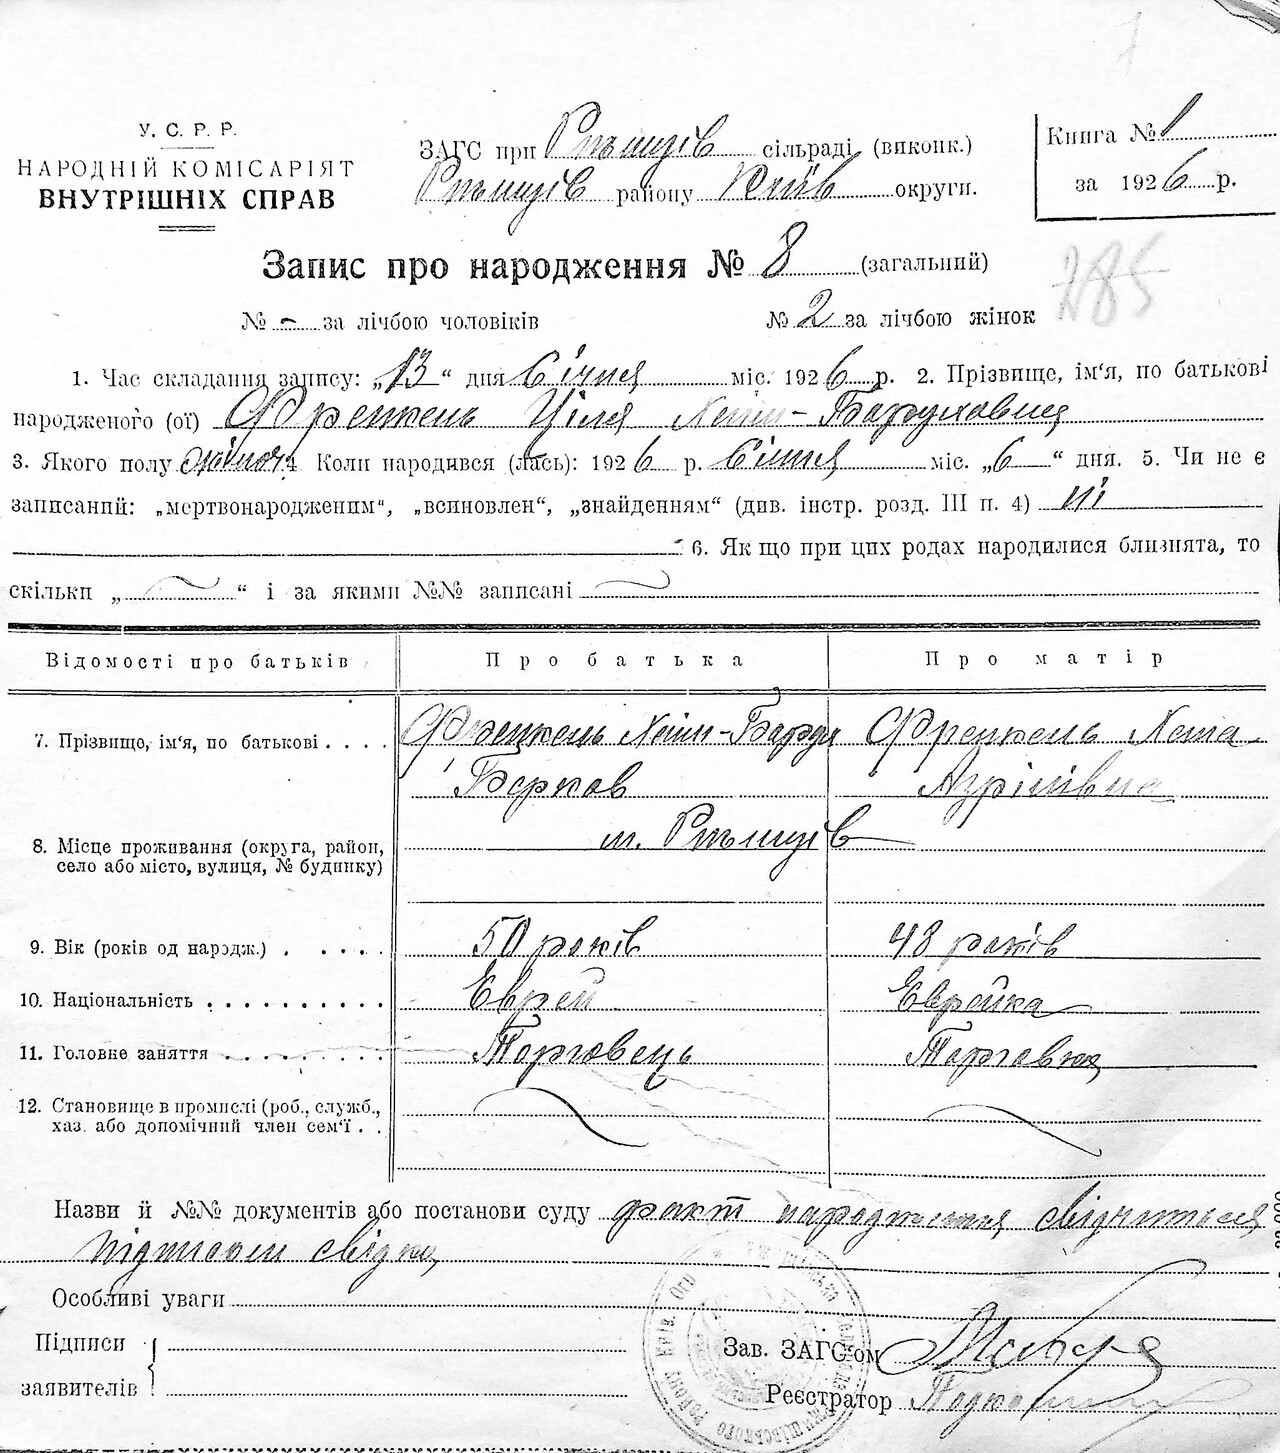 У. С. Р. Р.
НАРОДНІЙ КОМІСАРІЯТ
ВНУТРІШНІХ СПРАВ
ЗАГС при Ржищів сільраді (виконк.)
Ржищів району Київ округи.
Книга № 1
за 1926 р.
Запис про народження № 8 (загальний)
285
№ - за лічбою чоловіків № 2 за лічбою жінок
1. Час складання запису: „13“ дня Січня міс. 1926 р. 2. Прізвище, ім‘я, по батькові
народженого (ої) Френкель Циля Хаим-Баруховна
3. Якого полу жіноч. 4. Коли народився (лась): 1926 р. Січня міс. „6“ дня. 5. Чи не є
записаний: „мертвонародженим“, „всиновлен“, „знайденням“ (див. інстр. розд. III п. 4) ні
6. Як що при цих родах народилися близнята, то
скільки „ “ і за якими №№ записані
Відомості про батьків Про батька Про матір
7. Прізвище, ім‘я, по батькові . . . . Френкель Хаим-Барух Френкель Хана
Берков Азрілівна
8. Місце проживання (округа, район, м. Ржищів
село або місто, вулиця, № будинку)
9. Вік (років од народж.) . . . . . 50 років 48 років
10. Національність . . . . . . . . . . Еврей Еврейка
11. Головне заняття . . . . . . . . . Торговець Торговка
12. Становище в промислі (роб., служб.,
хаз. або допомічний член сем‘ї . .
Назви й №№ документів або постанови суду факт народження свідчиться
підписом свідка
Особливі уваги
Підписи
заявителів
Зав. ЗАГС‘ом
Реєстратор